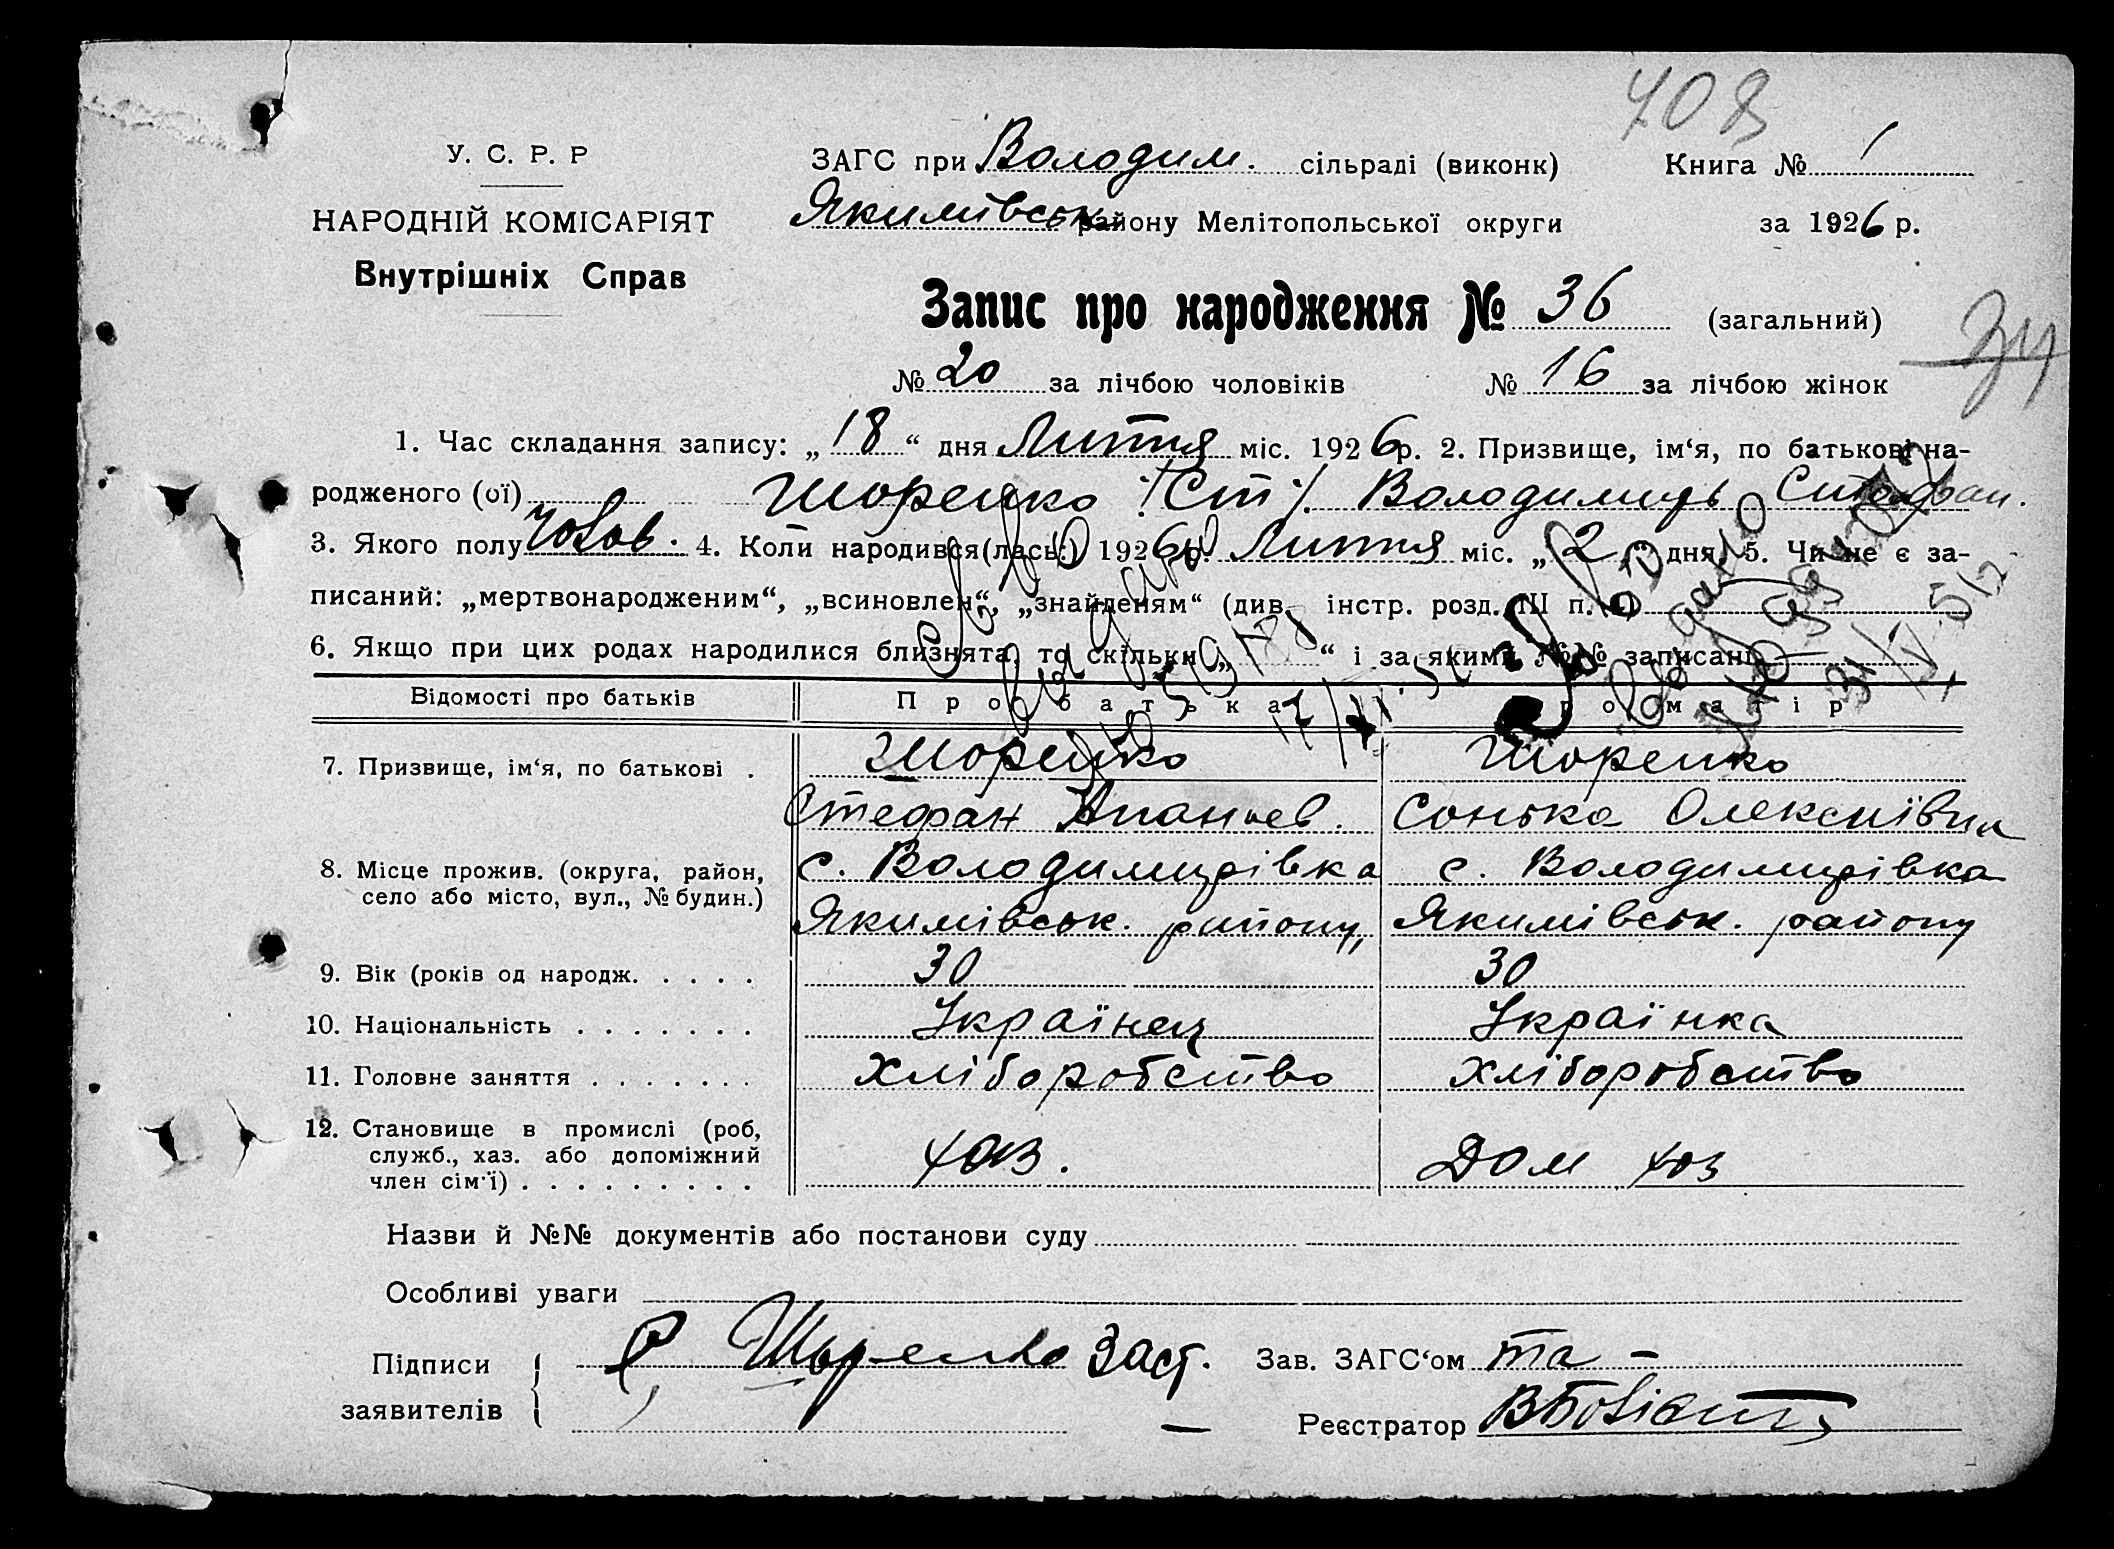 408
У. С. Р. Р
НАРОДНІЙ КОМІСАРІЯТ
Внутрішніх Справ
ЗАГС при Володим. сільраді (виконк)
Якимівськ району Мелітопольської округи
Книга № 1
за 1926 р.
Запис про народження № 36 (загальний)
№ 20 за лічбою чоловіків № 16 за лічбою жінок
34
1. Час складання запису: „ 18 “ дня Липтня міс. 1926 р. 2. Призвище, ім‘я, по батькові на-
родженого (ої) Шоренко /Ст/. Володимирь
3. Якого полу Чолов. 4. Коли народився(лась:) 1926 р. Липтня міс. „ 2 “ дня 5. Чи не є за-
писаний: „мертвонародженим“, „всиновлен“, „знайденям“ (див. інстр. розд. III п.
6. Якщо при цих родах народилися близнята, то скільки „ “ і за якими №№ записані
Відомості про батьків Про батька Про матір
7. Призвище, ім‘я, по батькові . Шоренко Шоренко
Стефан Ананьев. Сонька Олексиївна
8. Місце прожив. (округа, район, с. Володимирівка с. Володимирівка
село або місто, вул., № будин.) Якимівськ. району, Якимівськ. району
9. Вік (років од народж. . . . . 30 30
10. Національність . . . . . . . Українец Українка
11. Головне заняття . . . . . . . Хліборобство Хліборобство
12. Становище в промислі (роб,
служб., хаз. або допоміжний хаз. Дом хоз
член сім‘ї) . . . . . . . . .
Назви й №№ документів або постанови суду
Особливі уваги
Підписи заявителів Шоренко Заст. Зав. ЗАГС‘ом та –
Реєстратор